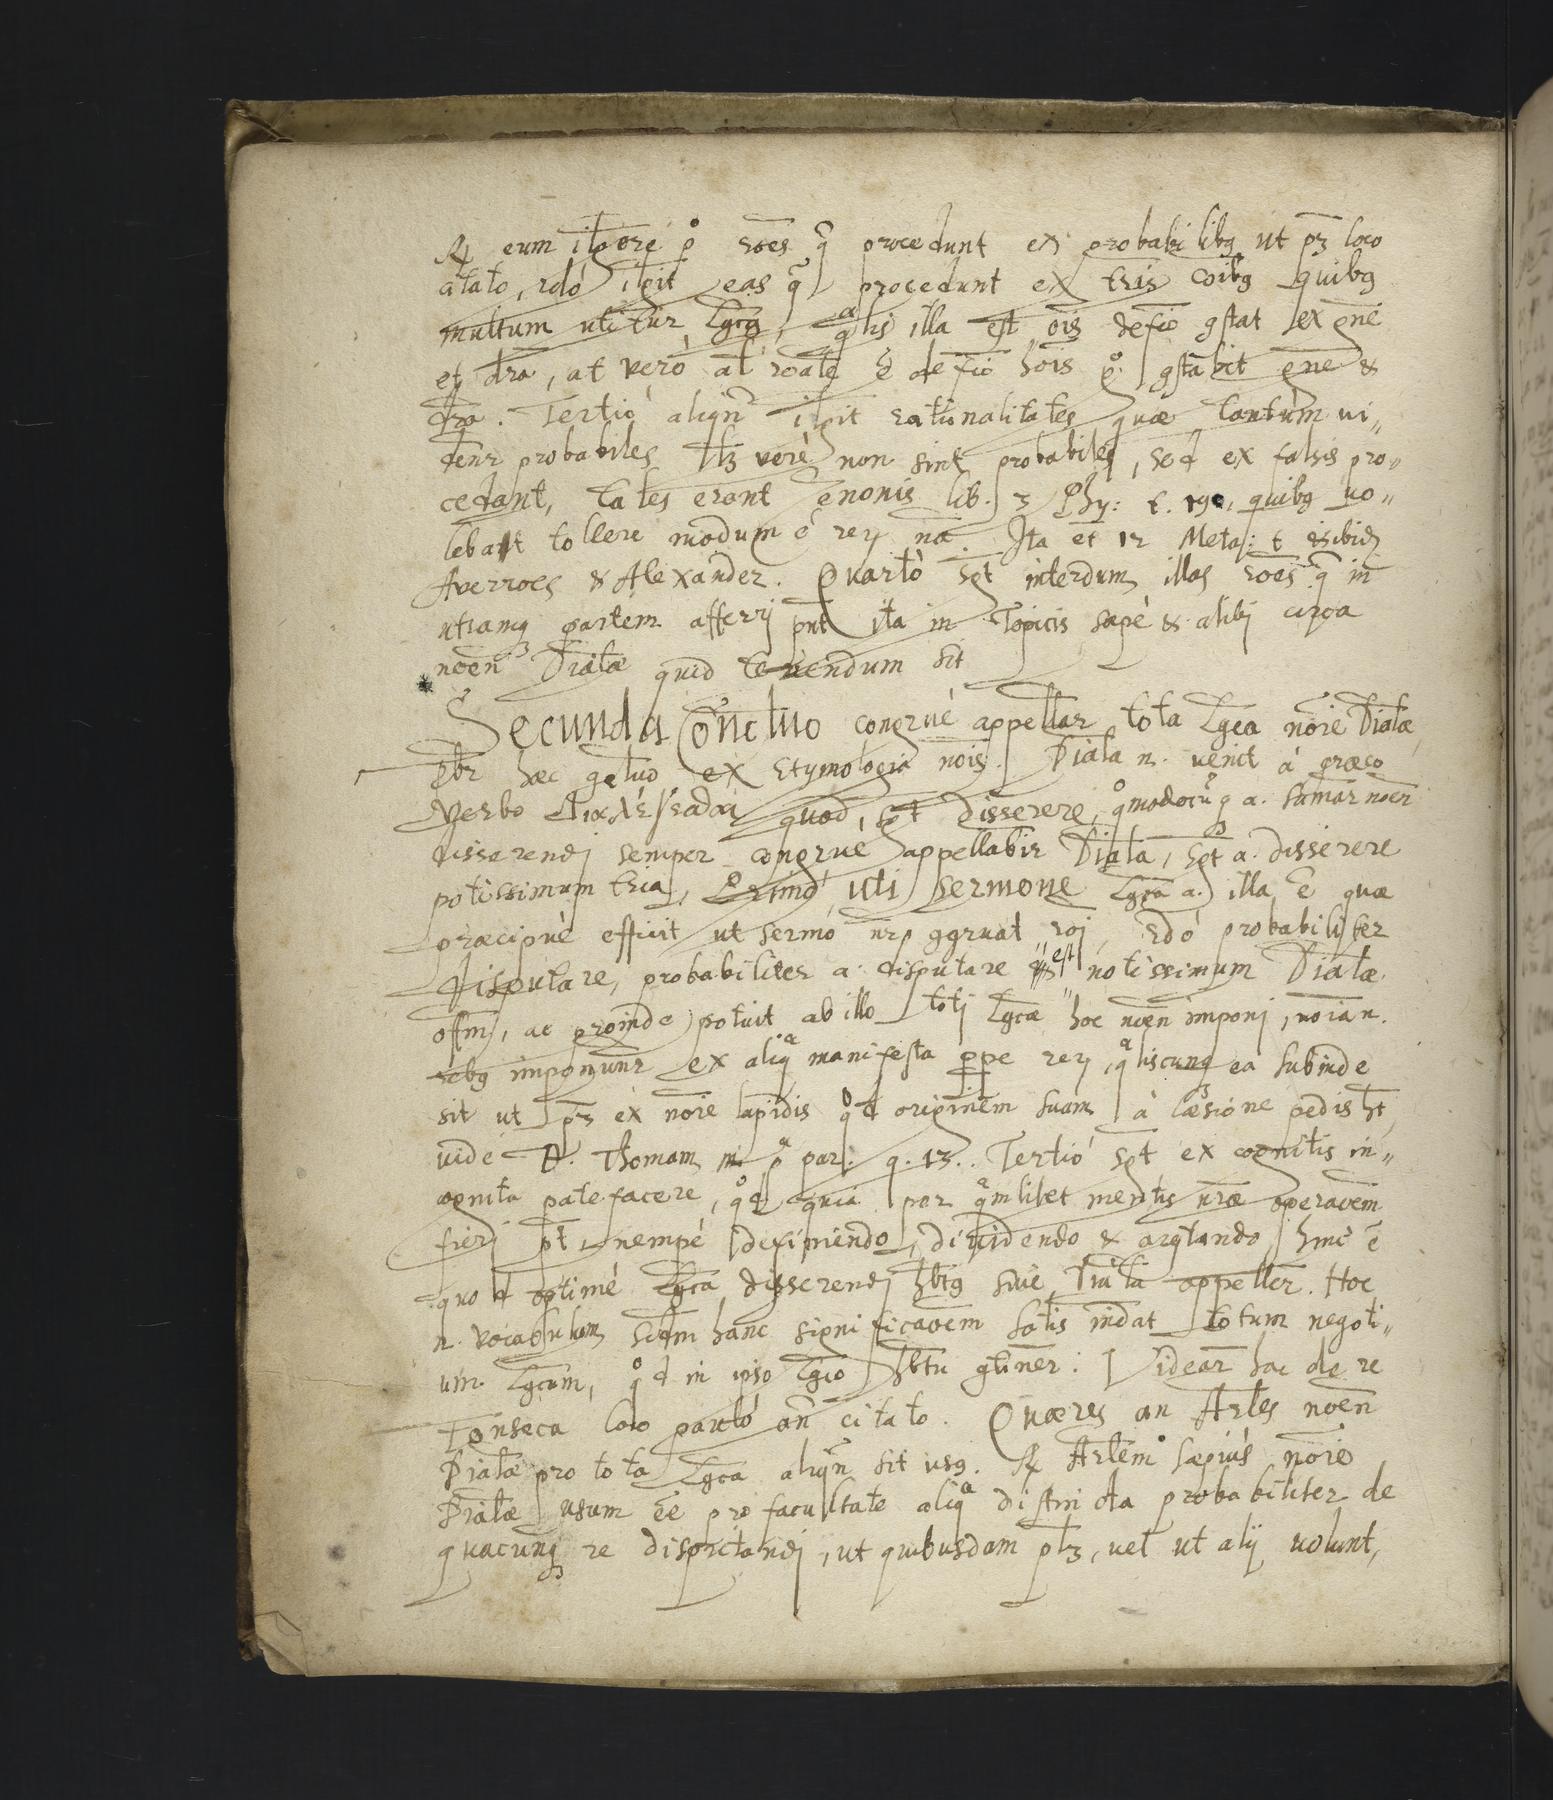 ℞ eum itpore pº rões q̃ procedunt ex probabilibꝰ ut pꝫ loco
alato, 2dó itpit eas q̃ procedunt ex tris coibꝰ quibꝰ
multum utitur Lgca, qᵃlis illa est oīs defīo gstat ex gne
et dra, at veró aĺ roāle ē defīo hoīs gº gstabit gne &
dra. Tertió aliqñ itpit rationalitates quæ tantùm ui„
denr probabiles lꝫ veré non sint probabiles, sed ex falsis pro„
cedant, tales erant Zenonis lib. Phy: t. quibꝰ uo„
lebat tollere modum é rerum na. Ita et 12 Metaf: t
Averroes & Alexander. Quartò spt interdum illas rões q̃ in
utramqꝫ partem afferrj pnt ita in Topicis sæpè & alibj circa
noen Dialæ quid tenendum sit
Secunda Conctuo congrué appellar tota Lgca noīe Dialæ,
Pbr hæc gctuo ex Etymologia noīs. Diala n. venit à græco
Verbo διαλέγεσθαι quod spt disserere, qºmodocūqꝫ a. sumar noen
disserendj semper congrué appellabir Diala, spt a. disserere
potissimum tria, Primó uti sermone Lgca a. illa ē quæ
præcipuè efficit ut sermó nr ggruat roj, 2dó probabiliter
disputare, probabiliter a. disputare est notissimum Dialæ
offm, ac proinde potuit ab illo totj Lgcæ hoc noen imponj, noīa n.
rebꝰ imponunr ex aliqᵃ manifesta ꝑpe rerum, qᵃliscunqꝫ ea subinde
sit ut pꝫ ex noīe lapidis qºd originem suam à læsione pedis ht,
uide D. Thomam in pᵃ par. q. 13. Tertió spt ex cognitis in„
cognita patefacere, qºd quia per qᵃmlibet mentis nræ operaōem
fierj pt, nempé definiendo, diuidendo & argtando hinc ē
quod optimé Lgca disserendj hbtꝰ siue Diala appeller. Hoc
n. vocabulum scdm hanc significaōem satis indat totum negoti„
um Lgcum, qºd in ipso Lgco hbtu gtiner: Videar hac de re
Fonseca loco pauló añ citato. Quæres an Artles noen
Dialæ pro tota Lgca aliqñ sit usꝰ. ℞ Artlem sæpiús noīe
Dialæ usum ēe pro facultate aliqᵃ distincta probabiliter de
quacunqꝫ re disputandj, ut quibusdam plꝫ, uel ut alij uolunt,